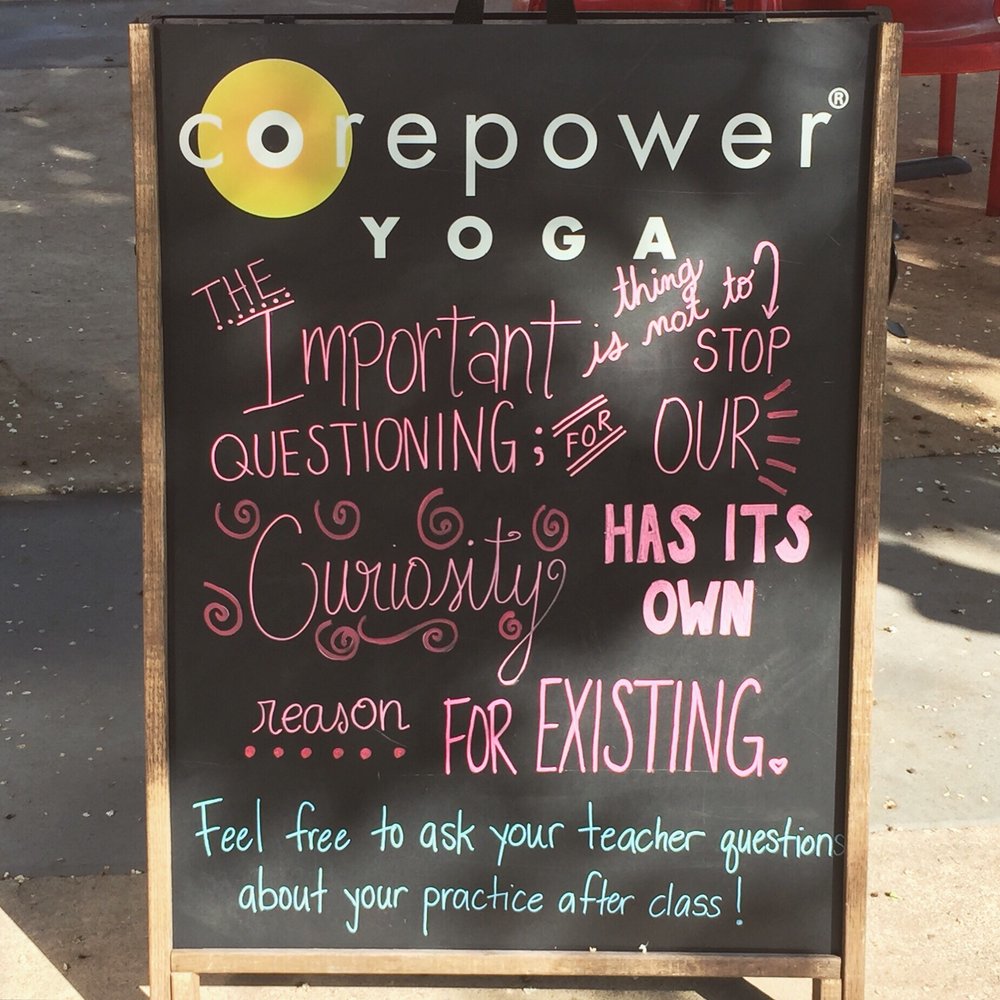 corepower®
YOGA
THE Important thing is not to STOP
QUESTIONING; FOR OUR
Curiosity HAS ITS OWN
reason FOR EXISTING.
Feel free to ask your teacher questions
about your practice after class!